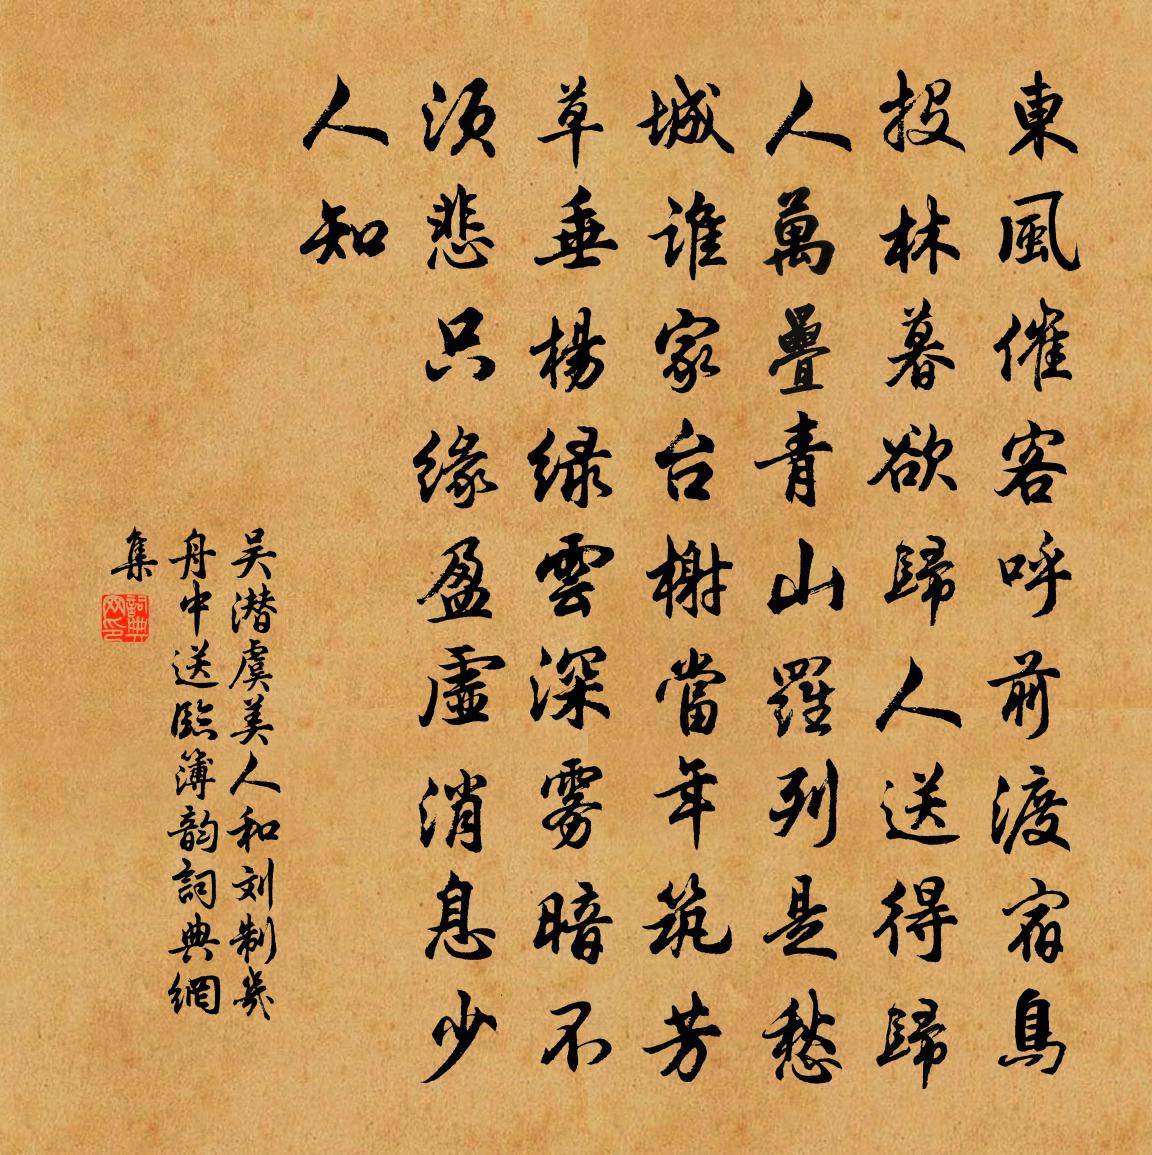 東風催客呼前渡宿鳥
投林暮欲歸人送得歸
人萬疊青山羅列是愁
城誰家台榭當年筑芳
草垂楊綠雲深雾暗不
須悲只緣盈虛消息少
人知
吴潜虞美人和刘制幾
舟中送臨簿韵詞典網
集
詞典網印